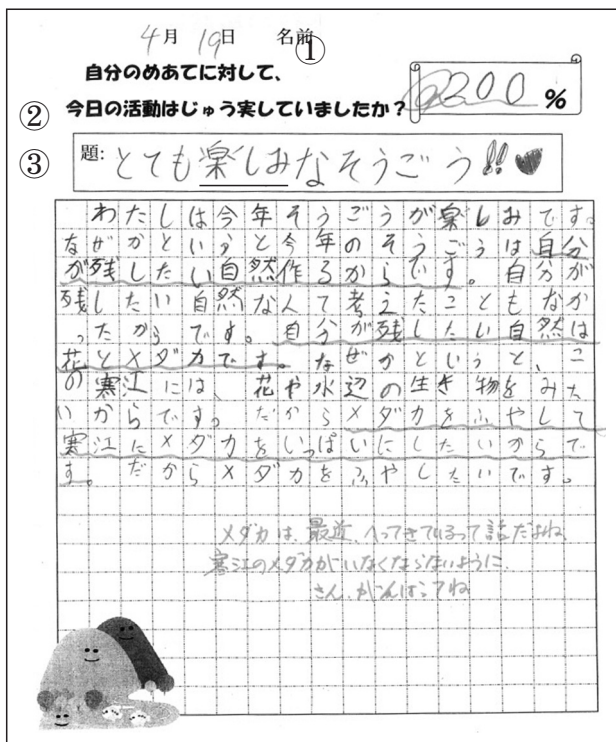 4月 19日 名前
①
自分のめあてに対して、
② 今日の活動はじゅう実していましたか？
200 %
③ 題: とても楽しみなそうごう!!♥
わたしは今年そうごうが楽しみです。
なぜかというと今年のそうごうは自分
が残したい自然作るからです。自分が
残したい自然なんて考えたこともなか
ったからです。自分が残したい自然は
花とメダカです。なぜかというと、こ
の寒江には、花や水辺の生き物をみた
いからです。だからメダカをふやして
寒江にメダカをいっぱいにしたいからで
す。だからメダカをふやしたいです。
メダカは、最近、へってきているって話だよね
寒江のメダカがいなくならないように、
さん、がんばってね